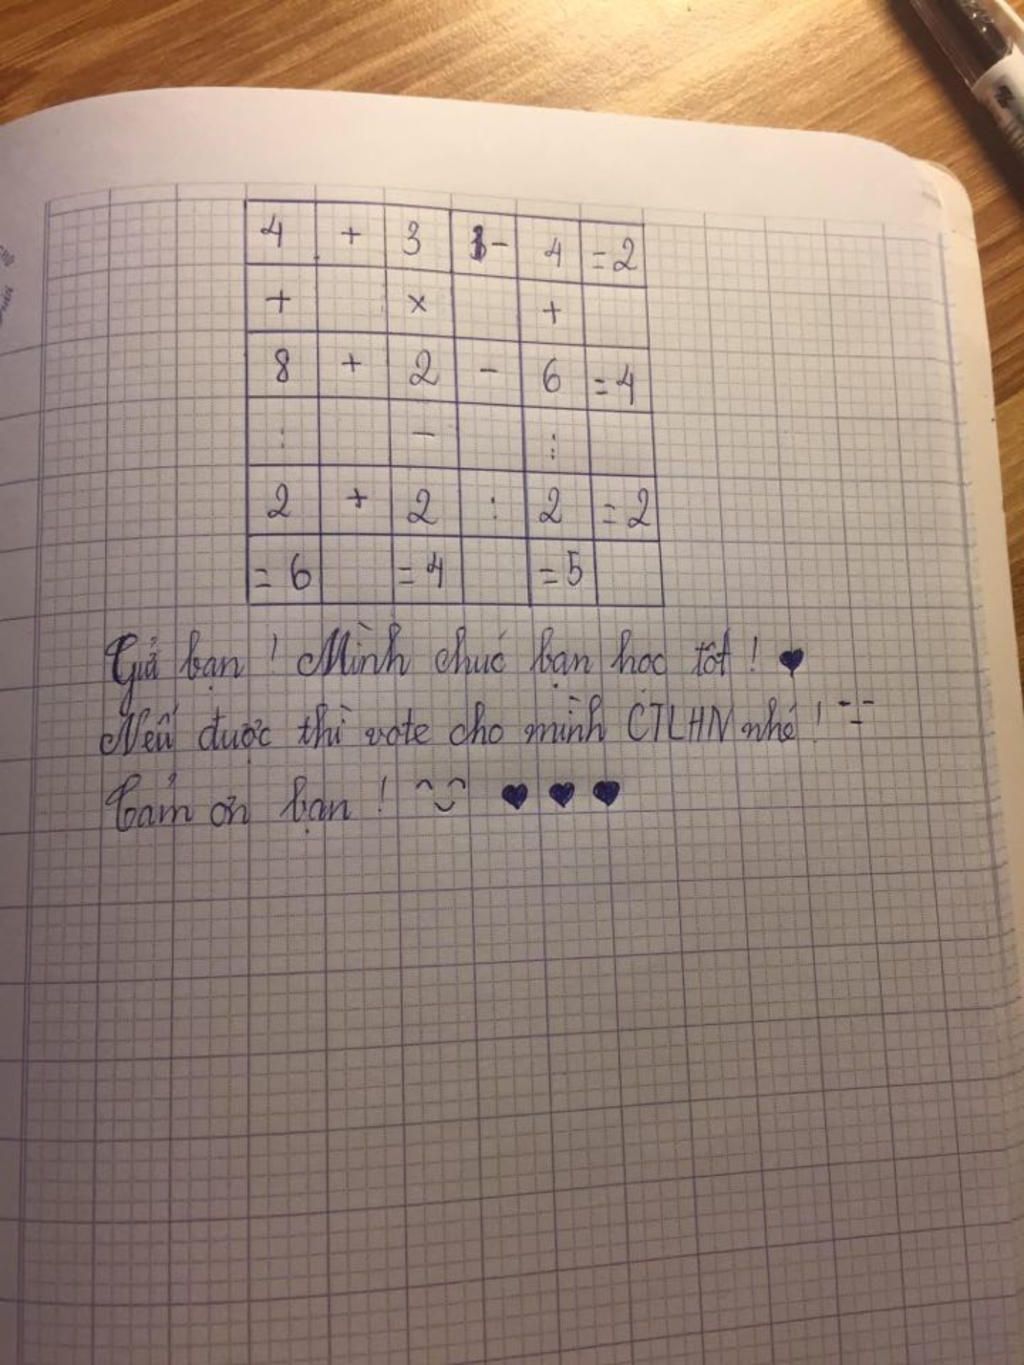 4 + 3 - 4 = 2
+ × +
8 + 2 - 6 = 4
: - :
2 + 2 : 2 = 2
= 6 = 4 = 5
Gửi bạn ! Mình chúc bạn học tốt ! ♥
Nếu được thì vote cho mình CTLHN nhé !
Cảm ơn bạn ! ♥ ♥ ♥